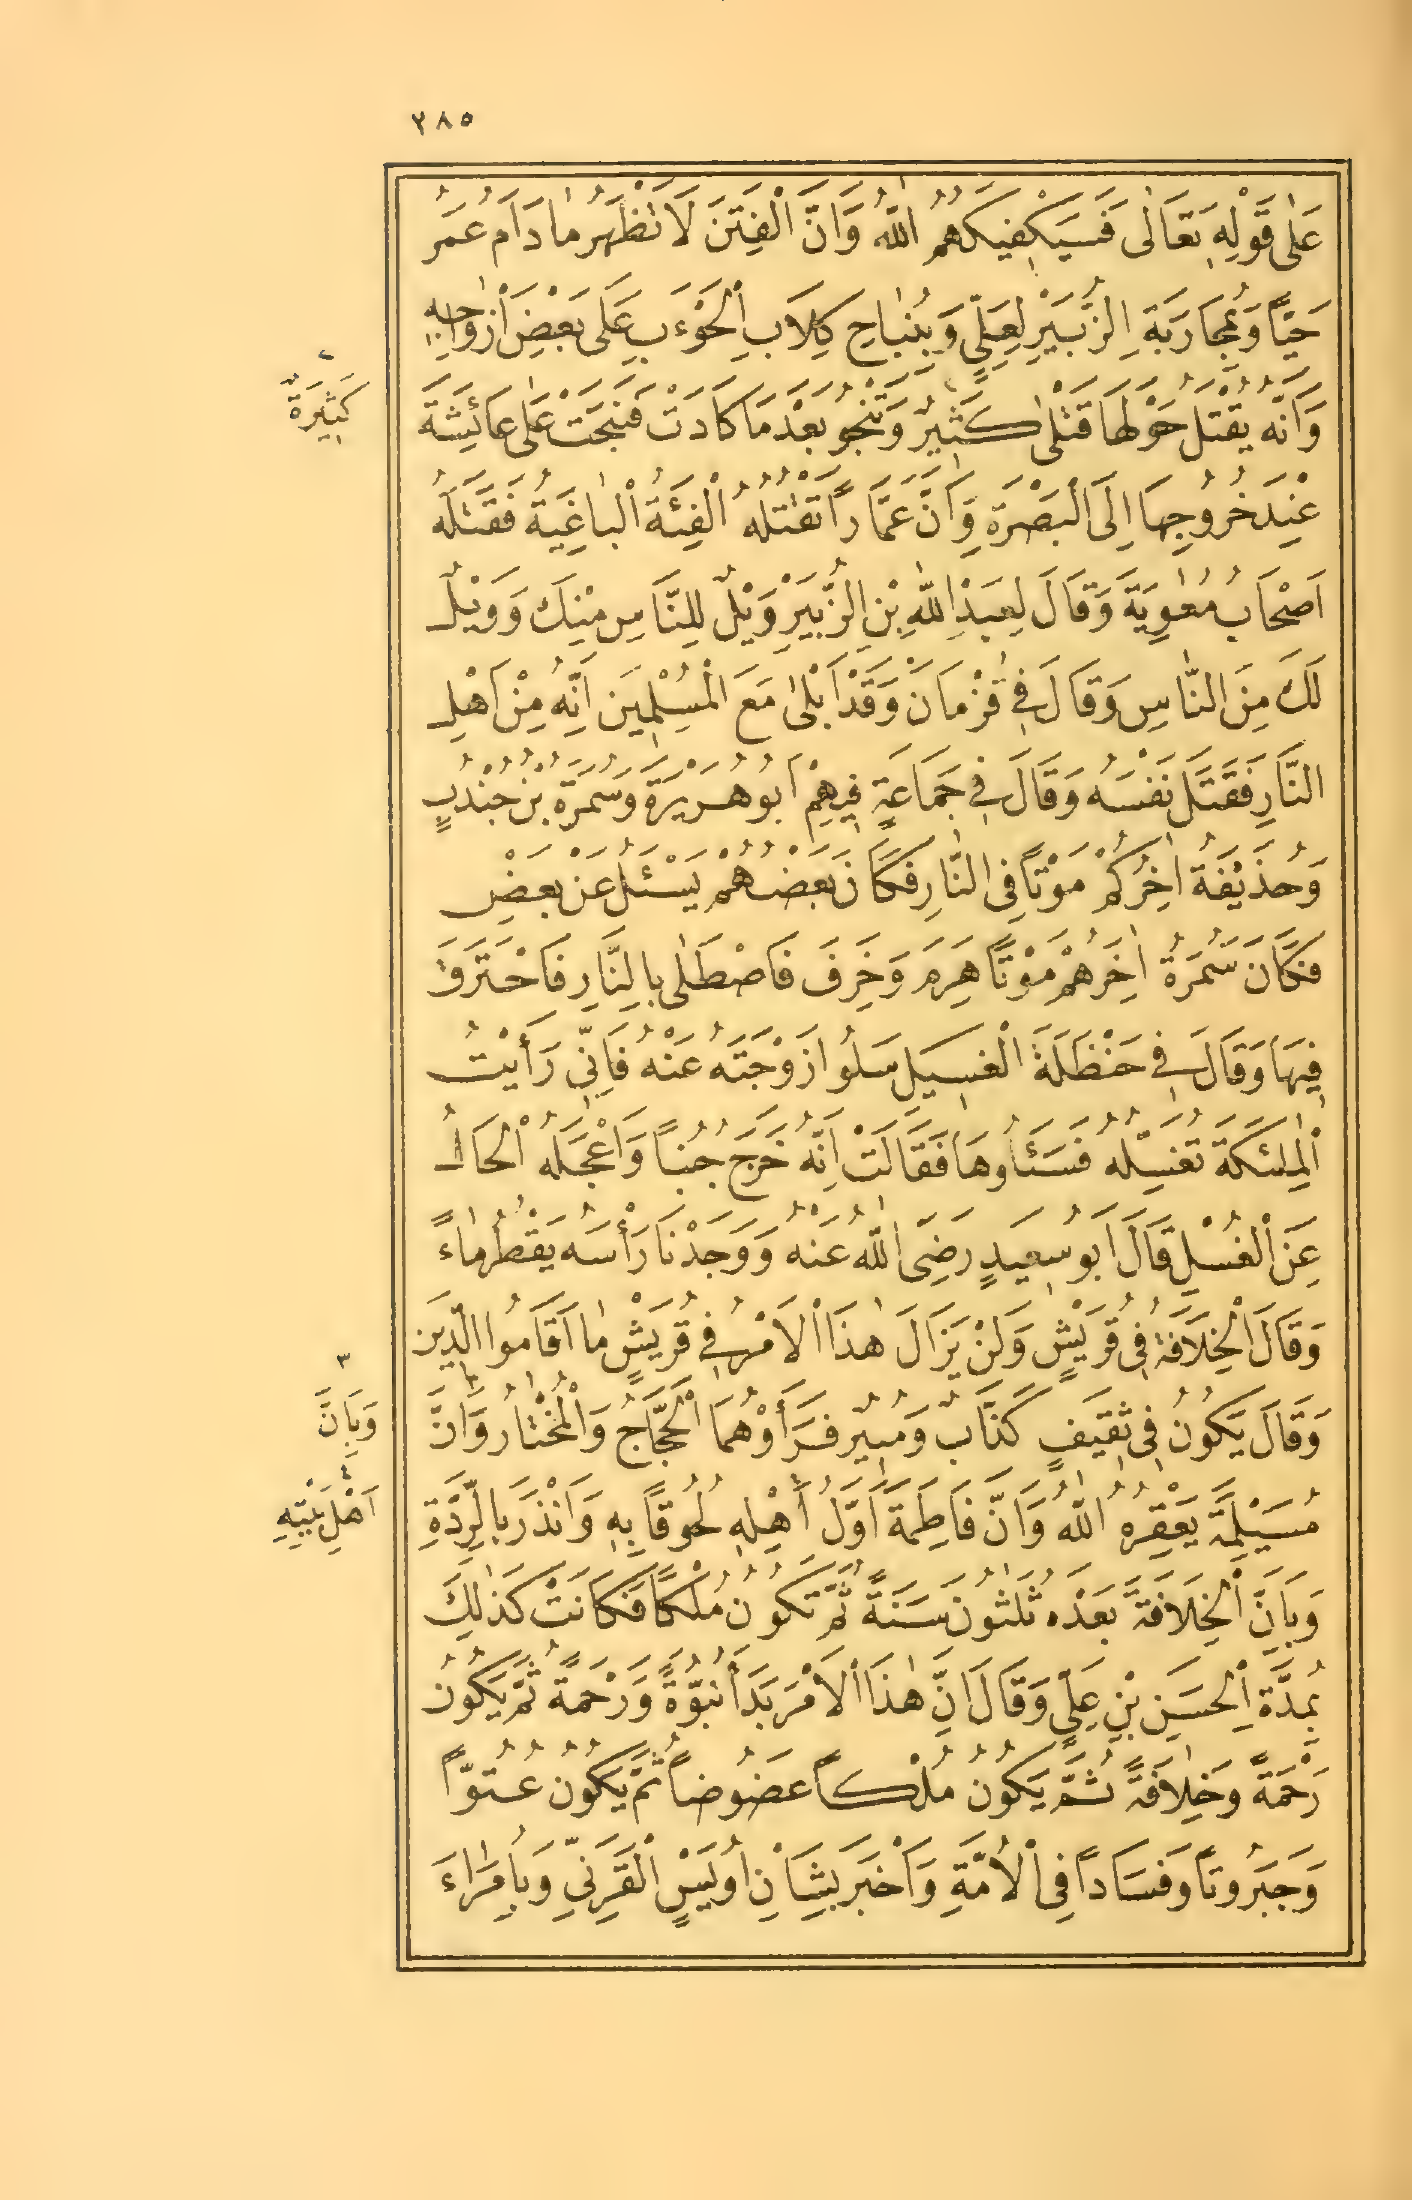 ٢٨٥
عَلٰى قَوْلِهِ تَعَالٰى فَسَيَكْفِيكَهُمُ اللّٰهُ وَاَنَّ الْفِتَنَ لَا تَظْهَرُ مَا دَامَ عُمَرُ
حَيًّا وَبِمُحَارَبَةِ الزُّبَيْرِ لِعَلِيٍّ وَبِنُبَاحِ كِلَابِ الْحَوْءَبِ عَلٰى بَعْضِ اَزْوَاجِهِ
وَاَنَّهُ يُقْتَلُ حَوْلَهَا قَتْلٰى كَثِيرٌ وَتَنْجُو بَعْدَ مَا كَادَتْ فَنَبَحَتْ عَلٰى عَائِشَةَ
كَثِيرَةٌ
عِنْدَ خُرُوجِهَا اِلَى الْبَصْرَةِ وَاَنَّ عَمَّارًا تَقْتُلُهُ الْفِئَةُ الْبَاغِيَةُ فَقَتَلَهُ
اَصْحَابُ مُعٰوِيَةَ وَقَالَ لِعَبْدِ اللّٰهِ بْنِ الزُّبَيْرِ وَيْلٌ لِلنَّاسِ مِنْكَ وَوَيْلٌ
لَكَ مِنَ النَّاسِ وَقَالَ فِي قُزْمَانَ وَقَدْ اَبْلٰى مَعَ الْمُسْلِمِينَ اِنَّهُ مِنْ اَهْلِ
النَّارِ فَقَتَلَ نَفْسَهُ وَقَالَ فِي جَمَاعَةٍ فِيهِمْ اَبُو هُرَيْرَةَ وَسَمُرَةُ بْنُ جُنْدُبٍ
وَحُذَيْفَةُ اٰخِرُكُمْ مَوْتًا فِي النَّارِ فَكَانَ بَعْضُهُمْ يَسْئَلُ عَنْ بَعْضٍ
فَكَانَ سَمُرَةُ اٰخِرَهُمْ مَوْتًا هَرِمَ وَخَرِفَ فَاصْطَلٰى بِالنَّارِ فَاحْتَرَقَ
فِيهَا وَقَالَ فِي حَنْظَلَةَ الْغَسِيلِ سَلُوا زَوْجَتَهُ عَنْهُ فَاِنِّي رَأَيْتُ
الْمَلٰئِكَةَ تُغَسِّلُهُ فَسَئَلُوهَا فَقَالَتْ اِنَّهُ خَرَجَ جُنُبًا وَاَعْجَلَهُ الْحَالُ
عَنِ الْغُسْلِ قَالَ اَبُو سَعِيدٍ رَضِيَ اللّٰهُ عَنْهُ وَوَجَدْنَا رَأْسَهُ يَقْطُرُ مَاءً
وَقَالَ الْخِلَافَةُ فِي قُرَيْشٍ وَلَنْ يَزَالَ هٰذَا الْاَمْرُ فِي قُرَيْشٍ مَا اَقَامُوا الدِّينَ
وَقَالَ يَكُونُ فِي ثَقِيفٍ كَذَّابٌ وَمُبِيرٌ فَرَأَوْهُمَا الْحَجَّاجُ وَالْمُخْتَارُ وَاَنَّ
وَبِاَنَّ
مُسَيْلِمَةَ يَعْقِرُهُ اللّٰهُ وَاَنَّ فَاطِمَةَ اَوَّلُ اَهْلِهِ لُحُوقًا بِهِ وَاَنْذَرَ بِالرِّدَّةِ
اَهْلِ بَيْتِهِ
وَبِاَنَّ الْخِلَافَةَ بَعْدَهُ ثَلٰثُونَ سَنَةً ثُمَّ تَكُونُ مُلْكًا فَكَانَتْ كَذٰلِكَ
بِمُدَّةِ الْحَسَنِ بْنِ عَلِيٍّ وَقَالَ اِنَّ هٰذَا الْاَمْرَ بَدَأَ نُبُوَّةً وَرَحْمَةً ثُمَّ يَكُونُ
رَحْمَةً وَخِلَافَةً ثُمَّ يَكُونُ مُلْكًا عَضُوضًا ثُمَّ يَكُونُ عُتُوًّا
وَجَبَرُوتًا وَفَسَادًا فِي الْاُمَّةِ وَاَخْبَرَ بِشَأْنِ اُوَيْسٍ الْقَرَنِيِّ وَبِاُمَرَاءَ